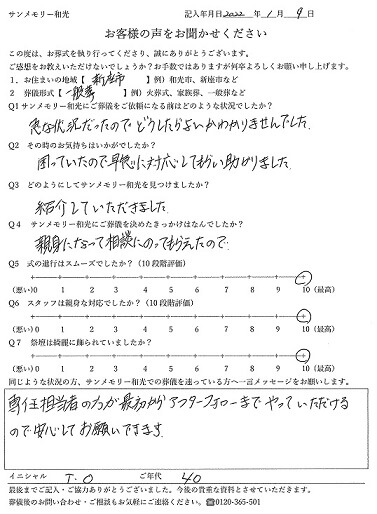 サンメモリー和光 記入年月日2022年1月9日
お客様の声をお聞かせください
この度は、お葬式を執り行ってくださり、誠にありがとうございます。
ご感想をお教えいただけないでしょうか？お手数ではありますが何卒よろしくお願い申し上げます。
1．お住まいの地域【 新座市 】例）和光市、新座市など
2 葬儀形式【 一般葬 】例）火葬式、家族葬、一般葬など
Q1サンメモリー和光にご葬儀をご依頼になる前はどのような状況でしたか？
急な状況だったのでどうしたらよいかわかりませんでした。
Q2 その時のお気持ちはいかがでしたか？
困っていたので早急に対応してもらい助かりました。
Q3 どのようにしてサンメモリー和光を見つけましたか？
紹介していただきました。
Q4 サンメモリー和光にご葬儀を決めたきっかけはなんでしたか？
親身になって相談にのってもらえたので。
Q5 式の進行はスムーズでしたか？（10段階評価）
(悪い)0 1 2 3 4 5 6 7 8 9 10（最高）
Q6 スタッフは親身な対応でしたか？（10段階評価）
(悪い)0 1 2 3 4 5 6 7 8 9 10（最高）
Q7 祭壇は綺麗に飾られていましたか？
(悪い)0 1 2 3 4 5 6 7 8 9 10（最高）
同じような状況の方、サンメモリー和光での葬儀を迷っている方へ一言メッセージをお願いします。
専任担当者の方が最初からアフターフォローまでやっていただける
ので安心してお願いできます。
イニシャル T.O ご年代 40
最後までご記入・ご協力ありがとうございました。今後の貴重な資料とさせていただきます。
葬儀後のお問い合わせ・ご相談もお気軽にご連絡ください。☎0120-365-501